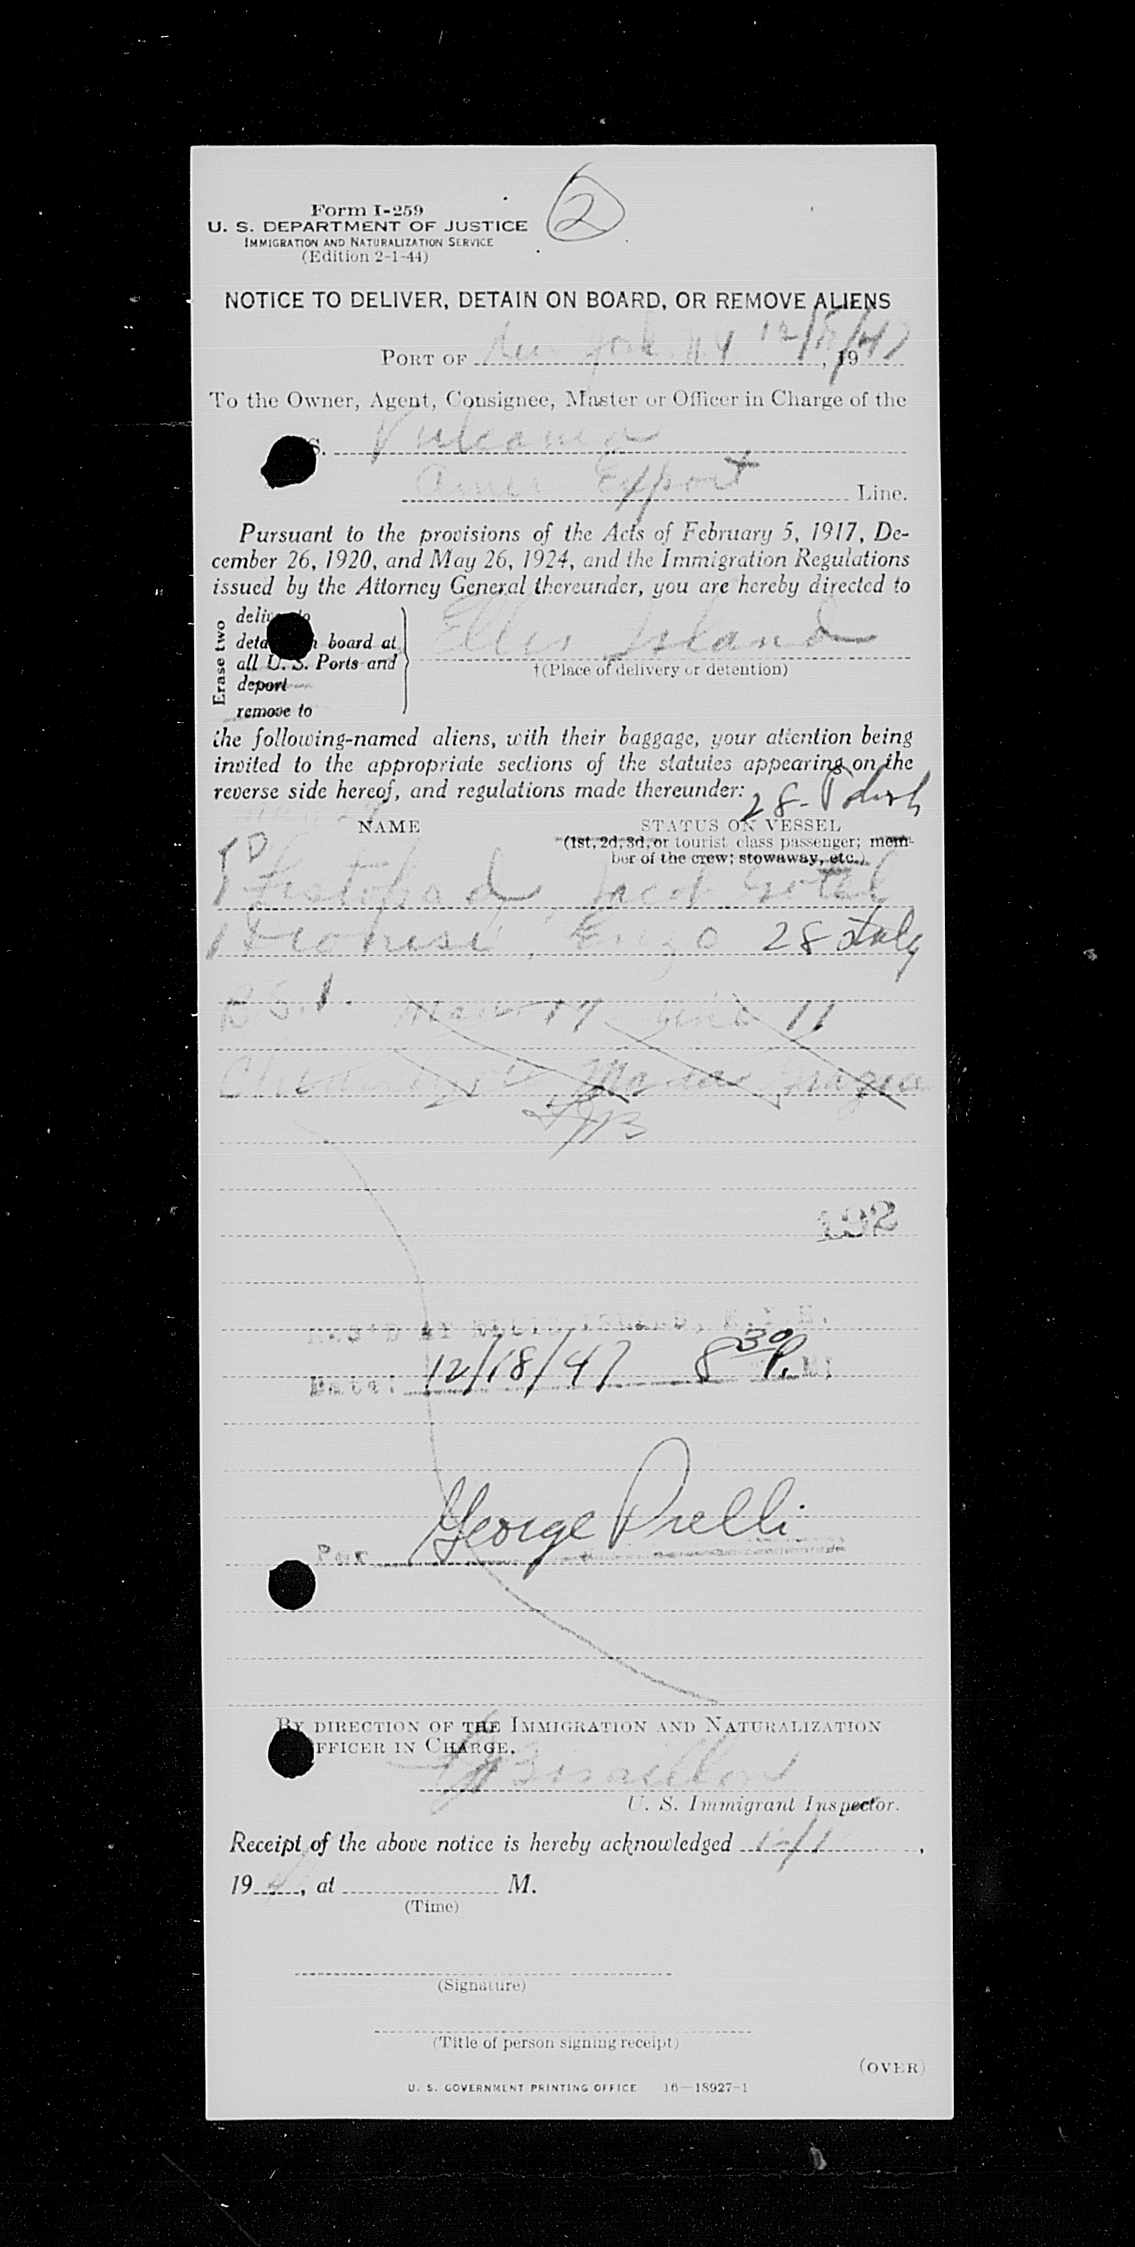 2
Form I-259
U. S. DEPARTMENT OF JUSTICE
IMMIGRATION AND NATURALIZATION SERVICE
(Edition 2-1-44)
NOTICE TO DELIVER, DETAIN ON BOARD, OR REMOVE ALIENS
PORT OF New York N Y 12/18/, 1947
To the Owner, Agent, Consignee, Master or Officer in Charge of the
S. Vulcania
Amer Export Line.
Pursuant to the provisions of the Acts of February 5, 1917, De-
cember 26, 1920, and May 26, 1924, and the Immigration Regulations
issued by the Attorney General thereunder, you are hereby directed to
Erase two
deliver to
detain on board at
all U. S. Ports and
deport
remove to
Ellis Island
†(Place of delivery or detention)
the following-named aliens, with their baggage, your attention being
invited to the appropriate sections of the statutes appearing on the
reverse side hereof, and regulations made thereunder:
28- Polish
NAME
STATUS ON VESSEL
(1st, 2d, 3d, or tourist class passenger; mem-
ber of the crew; stowaway, etc.)
TD
Listopad, Jacob
Dionisi, Enzo 28 Italy
B.S.I.
Maria
192
REC'D AT ELLIS ISLAND, N.Y.H.
Date: 12/18/47 8 30 P. M;
George Prelli
Per
BY DIRECTION OF THE IMMIGRATION AND NATURALIZATION
OFFICER IN CHARGE.
U. S. Immigrant Inspector.
Receipt of the above notice is hereby acknowledged
19 , at M.
(Time)
(Signature)
(Title of person signing receipt)
(OVER)
U. S. GOVERNMENT PRINTING OFFICE 16—18927-1